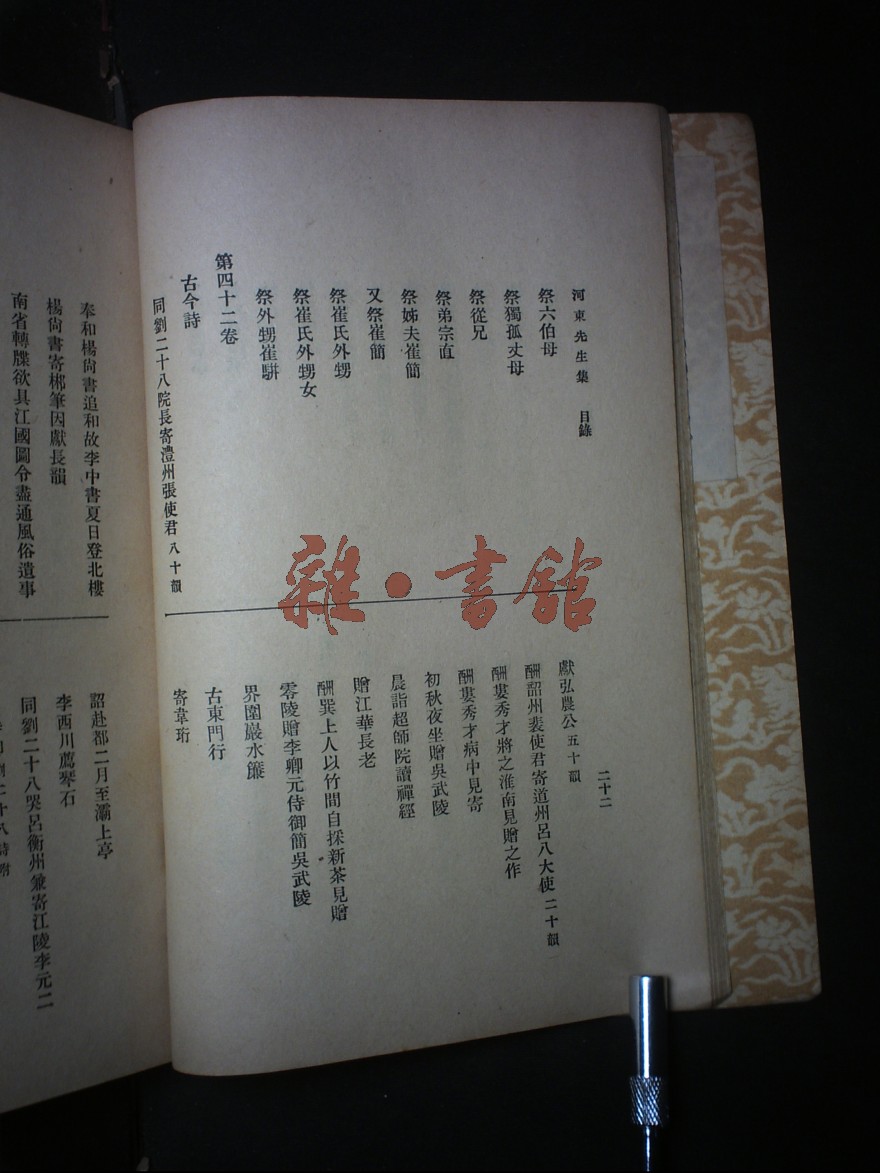 河東先生集 目錄
二十二
祭六伯母
祭獨孤丈母
祭從兄
祭弟宗直
祭姊夫崔簡
又祭崔簡
祭崔氏外甥
祭崔氏外甥女
祭外甥崔駢
第四十二卷
古今詩
同劉二十八院長寄澧州張使君八十韻
獻弘農公五十韻
酬韶州裴使君寄道州呂八大使二十韻
酬婁秀才將之淮南見贈之作
酬婁秀才病中見寄
初秋夜坐贈吳武陵
晨詣超師院讀禪經
贈江華長老
酬巽上人以竹間自採新茶見贈
零陵贈李卿元侍御簡吳武陵
界圍巖水簾
古東門行
寄韋珩
奉和楊尙書追和故李中書夏日登北樓
楊尙書寄郴筆因獻長韻
南省轉牒欲具江國圖令盡通風俗遺事
詔赴都二月至灞上亭
李西川薦琴石
同劉二十八哭呂衡州兼寄江陵李元二
劉二十八詩附
雜·書館